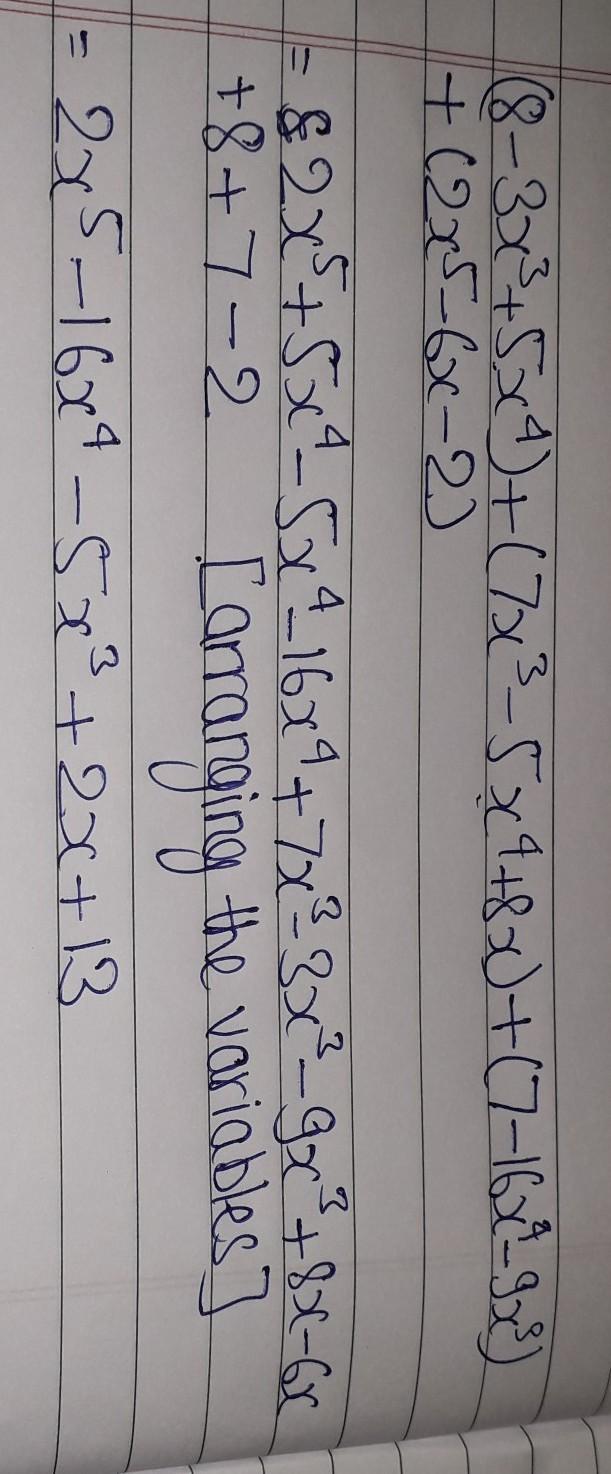 (8-3x³+5x⁴)+(7x³-5x⁴+8x)+(7-16x⁴-9x³)
+(2x⁵-6x-2)
= 2x⁵+5x⁴-5x⁴-16x⁴+7x³-3x³-9x³+8x-6x
+8+7-2 [arranging the variables]
= 2x⁵-16x⁴-5x³+2x+13